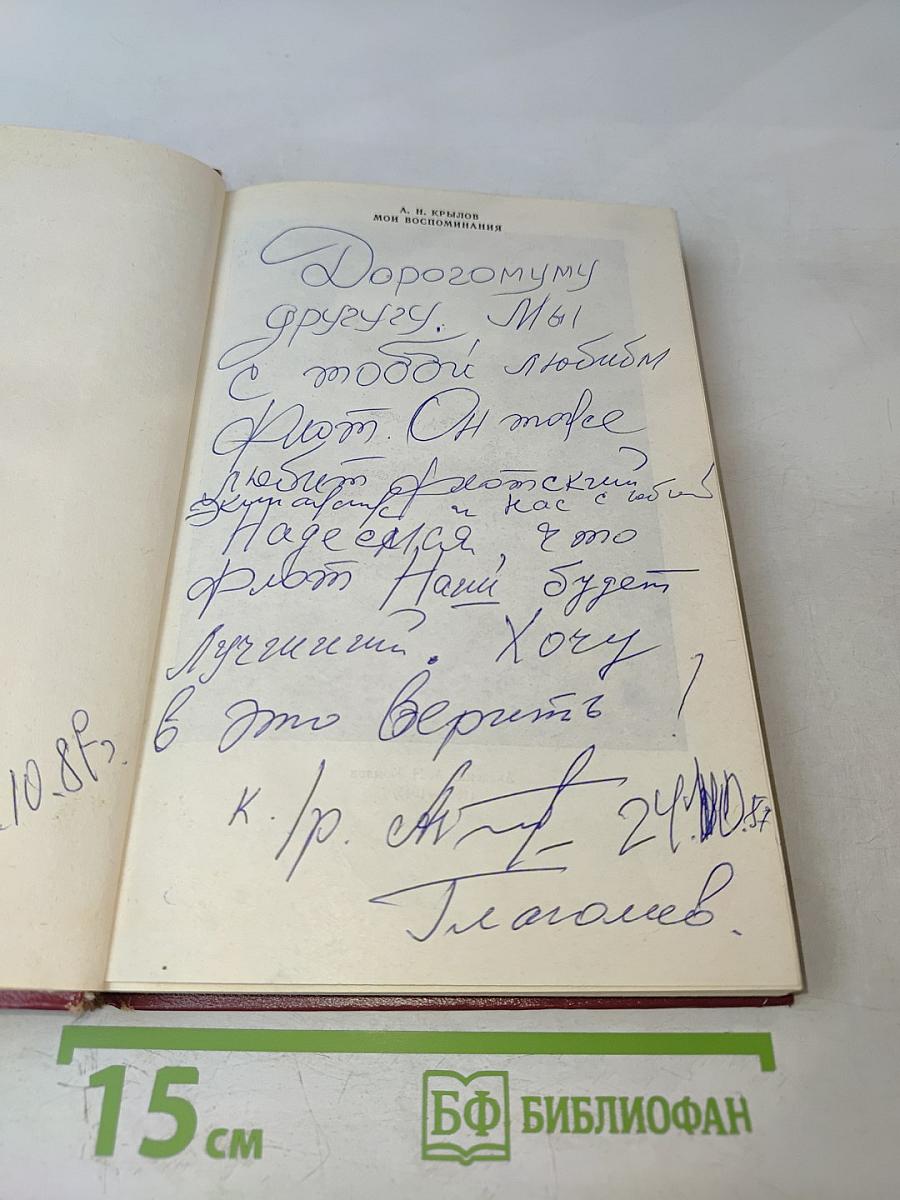 А. Н. КРЫЛОВ
МОИ ВОСПОМИНАНИЯ
Дорогомуму
другугу. Мы
с тобой любибм
Флот. Он тоже
любит Флотский
и нас с тобой
Надеемся, что
флот Наш будет
Лучший. Хочу
в это Верить!
.10.87г.
к. 1 р.
24.10.87
Глаголев.
15 см
БФ БИБЛИОФАН